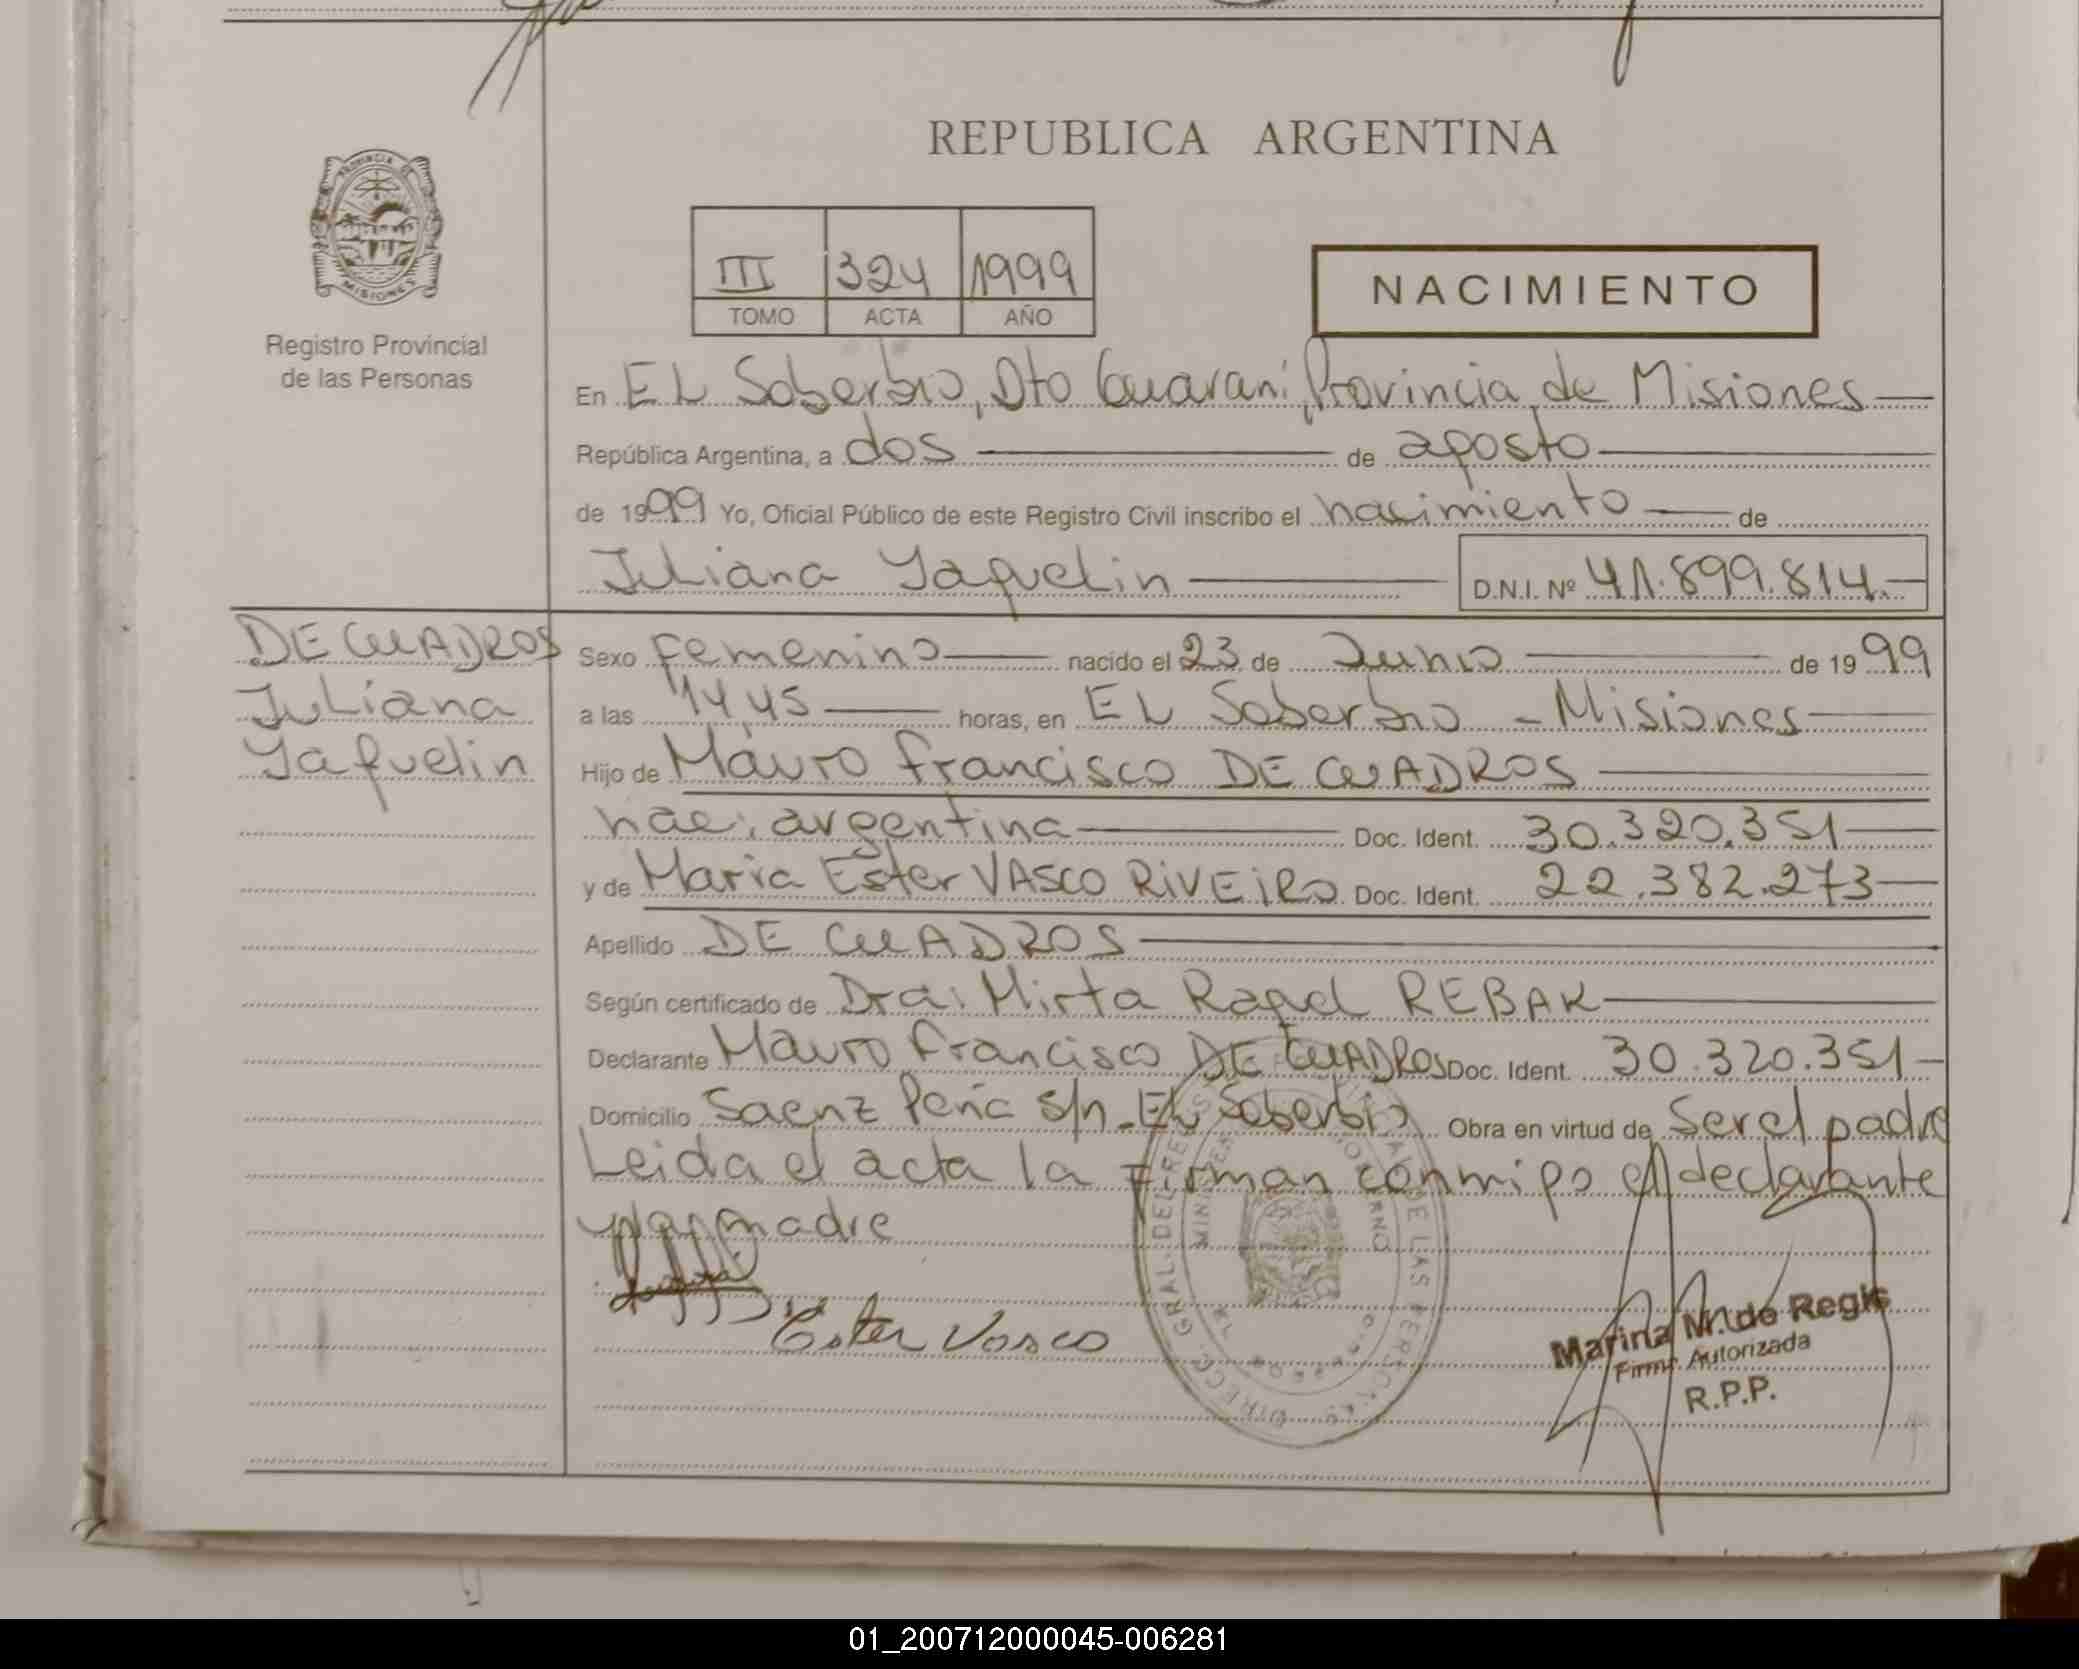 REPUBLICA ARGENTINA
PROVINCIA DE
MISIONES
Registro Provincial
de las Personas
III 324 1999
TOMO ACTA AÑO
NACIMIENTO
En EL Soberbio, Dto Guarani, Provincia de Misiones
República Argentina, a dos de agosto
de 1999 Yo, Oficial Público de este Registro Civil inscribo el nacimiento de
Juliana Yaquelin D.N.I. Nº 41.899.814.
DE CUADROS
Juliana
Yaquelin
Sexo Femenino nacido el 23 de Junio de 1999
a las 14,45 horas, en EL Soberbio - Misiones
Hijo de Mauro Francisco DE CUADROS
nac: argentina Doc. Ident. 30.320.351
y de Maria Ester VASCO RIVEIRO Doc. Ident. 22.382.273
Apellido DE CUADROS
Según certificado de Dra: Mirta Raquel REBAK
Declarante Mauro Francisco DE CUADROS Doc. Ident. 30.320.351
Domicilio Saenz Peña s/n - EL Soberbio Obra en virtud de Ser el padre
Leida el acta la firman conmigo el declarante
y la madre
Ester Vasco
Marina M. de Regis
Firma Autorizada
R.P.P.
01_200712000045-006281